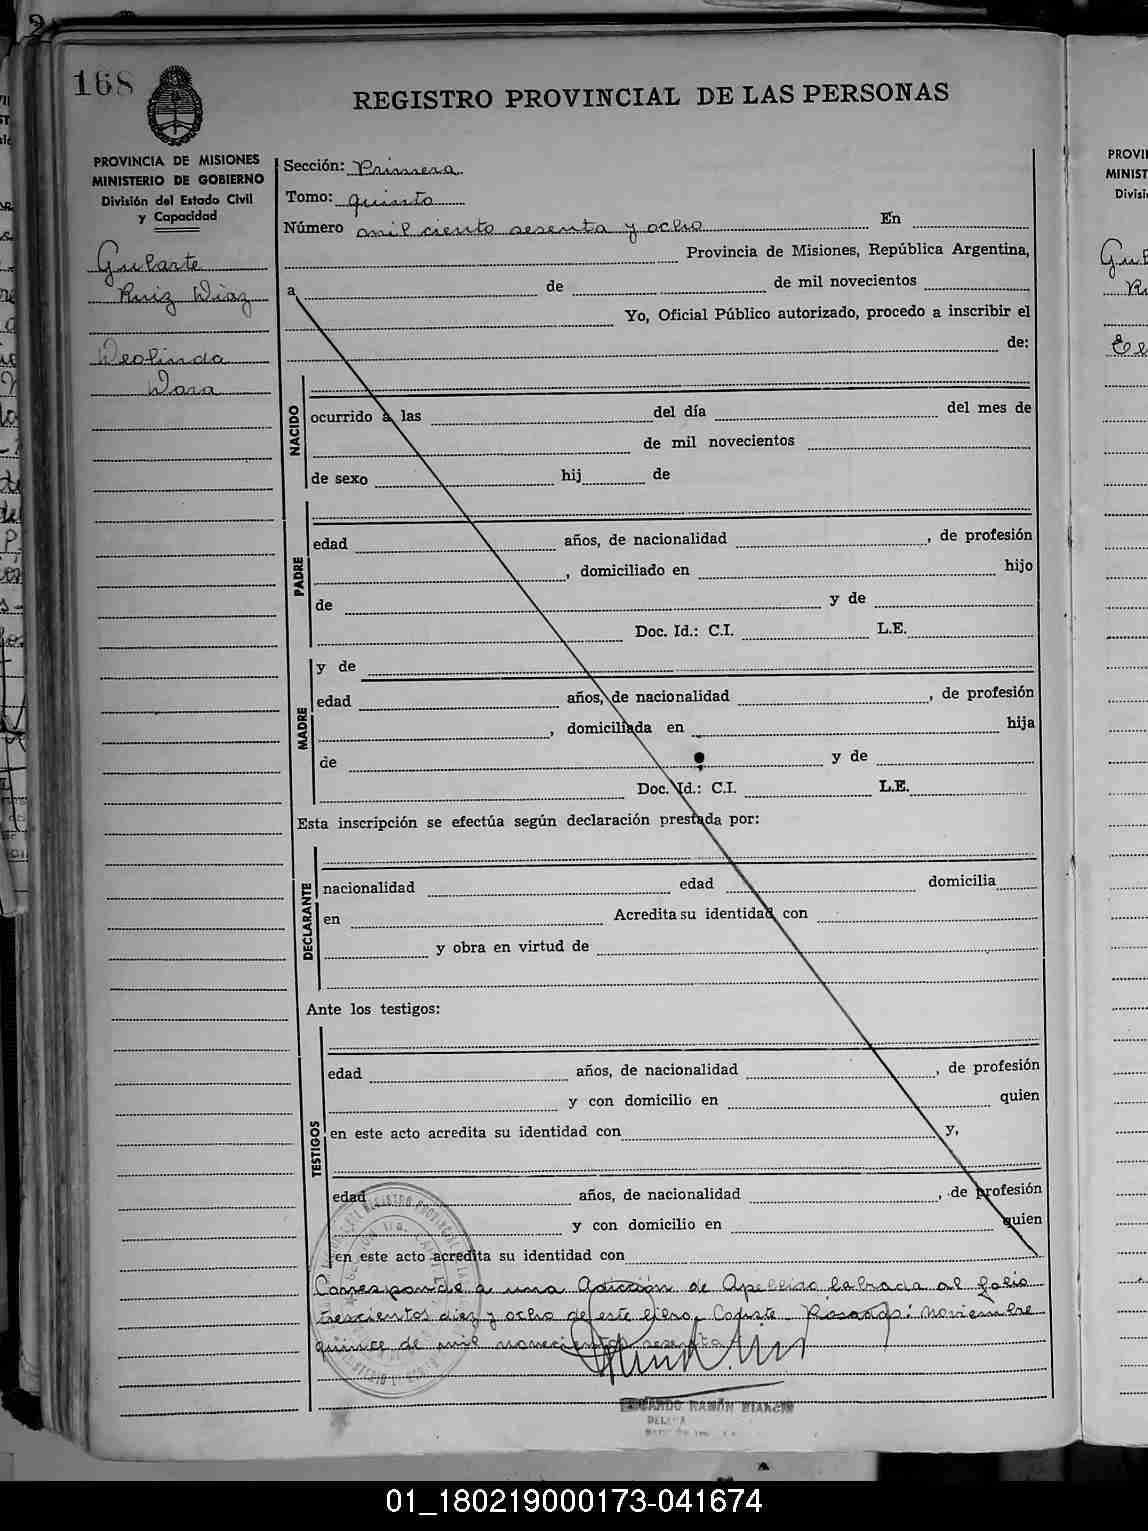 168
REGISTRO PROVINCIAL DE LAS PERSONAS
PROVINCIA DE MISIONES
MINISTERIO DE GOBIERNO
División del Estado Civil
y Capacidad
Gularte
Ruiz Diaz
Deolinda
Dora
Sección: Primera
Tomo: quinto
Número mil ciento sesenta y ocho En
Provincia de Misiones, República Argentina,
a de de mil novecientos
Yo, Oficial Público autorizado, procedo a inscribir el
de:
NACIDO
ocurrido a las del día del mes de
de mil novecientos
de sexo hij de
PADRE
edad años, de nacionalidad , de profesión
, domiciliado en hijo
de y de
Doc. Id.: C.I. L.E.
MADRE
y de
edad años, de nacionalidad , de profesión
, domiciliada en hija
de y de
Doc. Id.: C.I. L.E.
Esta inscripción se efectúa según declaración prestada por:
DECLARANTE
nacionalidad edad domicilia
en Acredita su identidad con
y obra en virtud de
Ante los testigos:
TESTIGOS
edad años, de nacionalidad , de profesión
y con domicilio en quien
en este acto acredita su identidad con y,
edad años, de nacionalidad , de profesión
y con domicilio en quien
en este acto acredita su identidad con
Corresponde a una Adición de Apellido labrada al folio
trescientos diez y ocho de este libro. Conste. Posadas: noviembre
quince de mil novecientos sesenta
RAMÓN
PROVI
MINIST
Divisi
01_180219000173-041674